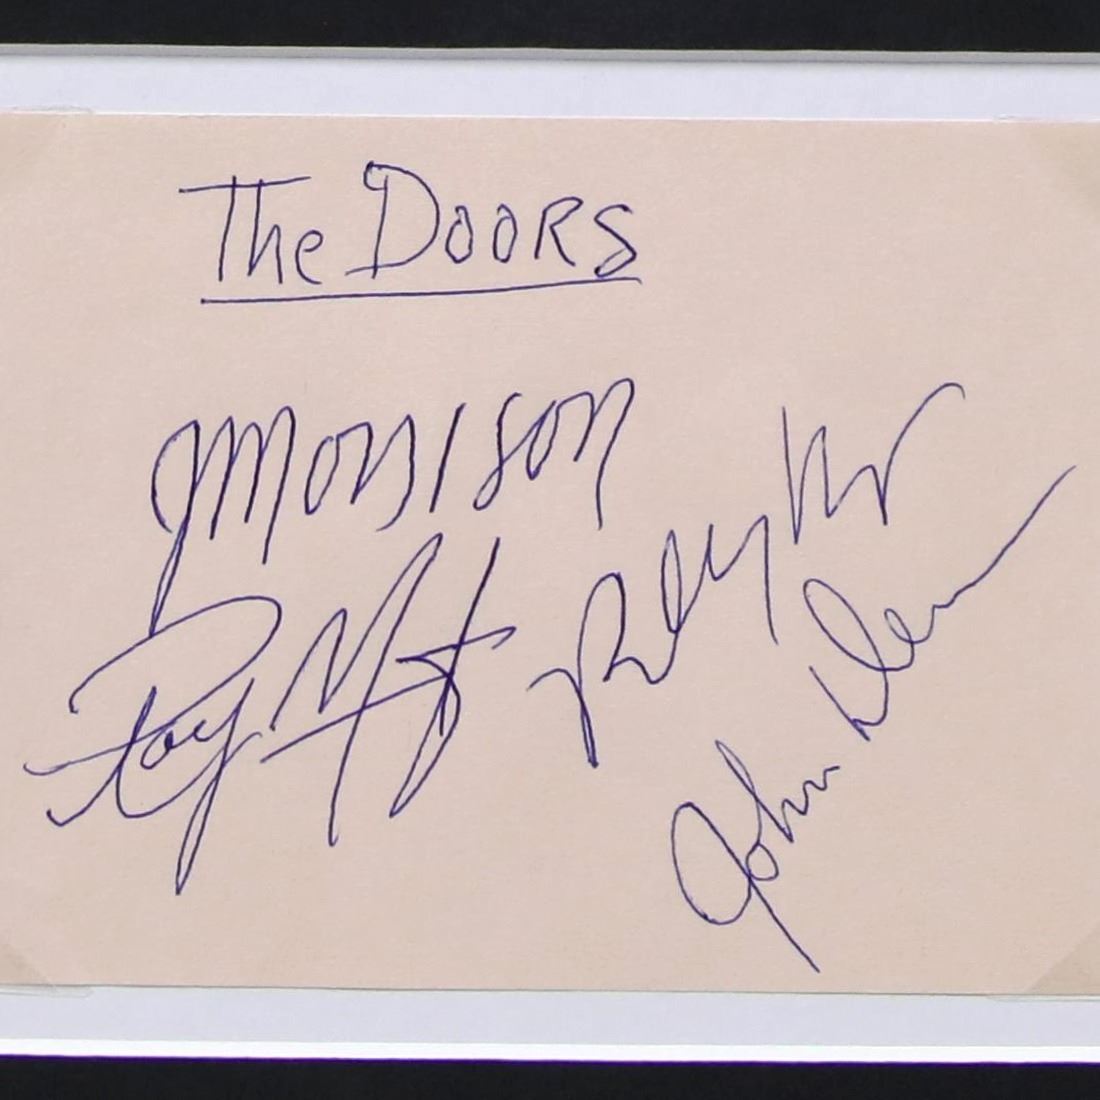 The Doors
J Morrison
Ray M
Robby K
John Den